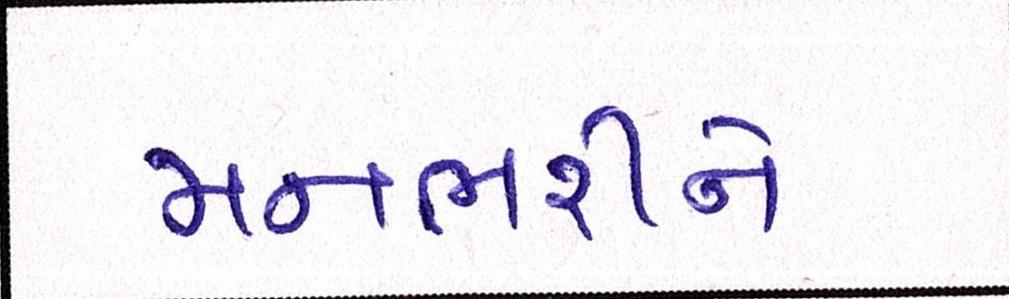 મનભરીને